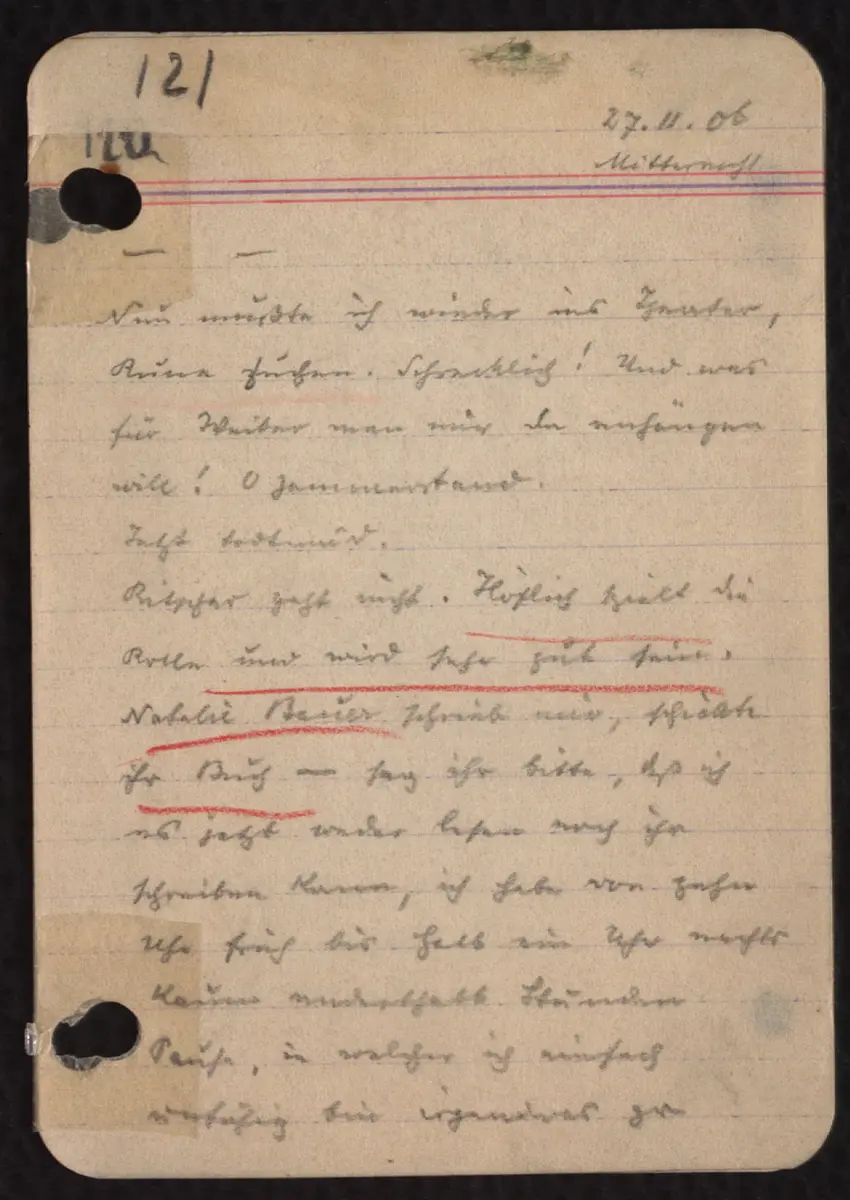 121
27.11.06
Mitternacht
— —
Nun mußte ich wieder ins Theater,
Kuna suchen. Schrecklich! Und was
für Weiber man mir da anhängen
will! O Jammerstand.
Jetzt todtmüd.
Ritscher geht nicht. Höflich spielt die
Rolle und wird sehr gut sein.
Natalie Bauer schrieb mir, schickte
ihr Buch — sag ihr bitte, daß ich
es jetzt weder lesen noch ihr
schreiben kann, ich habe von zehn
Uhr früh bis halb ein Uhr nachts
kaum anderthalb Stunden
Pause, in welcher ich einfach
unfähig bin irgendwas zu